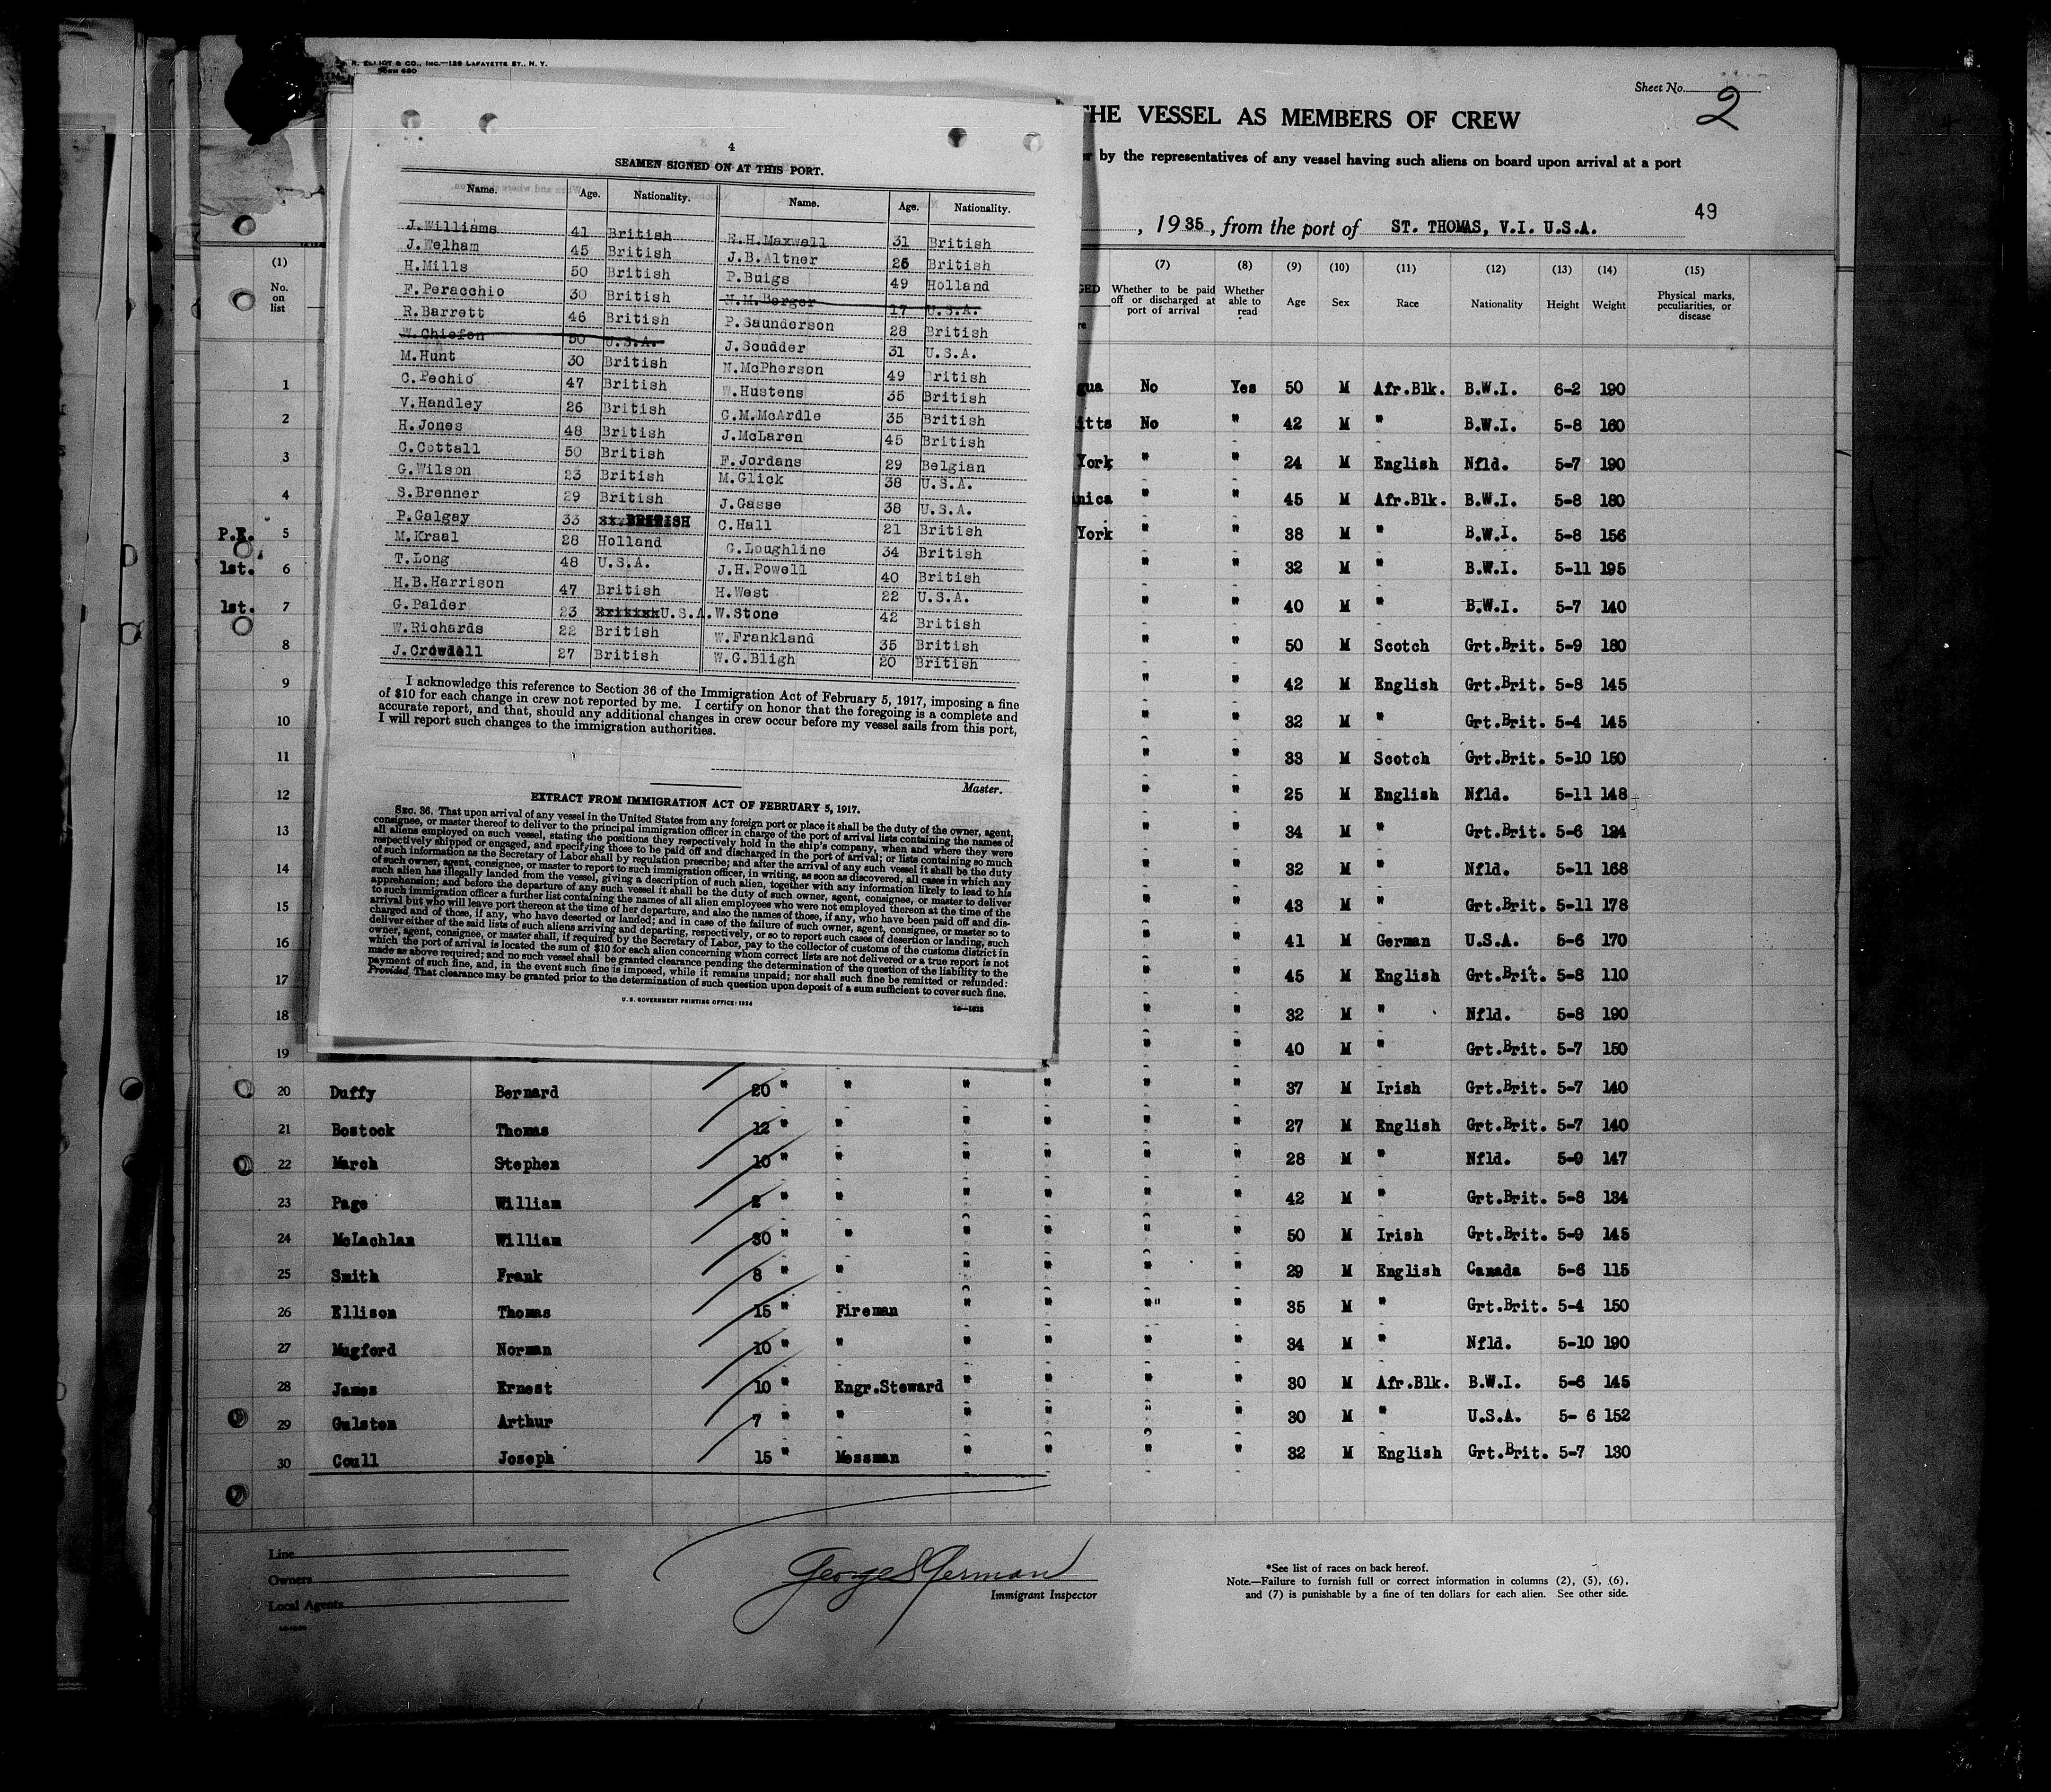 R. ELLIOT & CO., INC.—129 LAFAYETTE ST., N. Y.
FORM 680
Sheet No. 2
THE VESSEL AS MEMBERS OF CREW
by the representatives of any vessel having such aliens on board upon arrival at a port
49
, 1935, from the port of ST. THOMAS, V.I. U.S.A.
4
SEAMEN SIGNED ON AT THIS PORT.
Name. Age. Nationality. Name. Age. Nationality.
J.Williams 41 British E.H.Maxwell 31 British
J.Welham 45 British J.B.Altner 26 British
H.Mills 50 British P.Buigs 49 Holland
F.Peracchio 30 British N.M.Berger 17 U.S.A.
R.Barrett 46 British P.Saunderson 28 British
W.Chiefon 50 U.S.A. J.Scudder 31 U.S.A.
M.Hunt 30 British N.McPherson 49 British
C.Pechio 47 British W.Hustens 35 British
V.Handley 26 British G.M.McArdle 35 British
H.Jones 48 British J.McLaren 45 British
C.Cottall 50 British F.Jordans 29 Belgian
G.Wilson 23 British M.Glick 38 U.S.A.
S.Brenner 29 British J.Gasse 38 U.S.A.
P.Galgay 33 BRITISH C.Hall 21 British
M.Kraal 28 Holland C.Loughline 34 British
T.Long 48 U.S.A. J.H.Powell 40 British
H.B.Harrison 47 British H.West 22 U.S.A.
G.Palder 23 U.S.A. W.Stone 42 British
W.Richards 22 British W.Frankland 35 British
J.Crowdell 27 British W.G.Bligh 20 British
I acknowledge this reference to Section 36 of the Immigration Act of February 5, 1917, imposing a fine
of $10 for each change in crew not reported by me. I certify on honor that the foregoing is a complete and
accurate report, and that, should any additional changes in crew occur before my vessel sails from this port,
I will report such changes to the immigration authorities.
Master.
EXTRACT FROM IMMIGRATION ACT OF FEBRUARY 5, 1917.
SEC. 36. That upon arrival of any vessel in the United States from any foreign port or place it shall be the duty of the owner, agent,
consignee, or master thereof to deliver to the principal immigration officer in charge of the port of arrival lists containing the names of
all aliens employed on such vessel, stating the positions they respectively hold in the ship's company, when and where they were
respectively shipped or engaged, and specifying those to be paid off and discharged in the port of arrival; or lists containing so much
of such information as the Secretary of Labor shall by regulation prescribe; and after the arrival of any such vessel it shall be the duty
of such owner, agent, consignee, or master to report to such immigration officer, in writing, as soon as discovered, all cases in which any
such alien has illegally landed from the vessel, giving a description of such alien, together with any information likely to lead to his
apprehension; and before the departure of any such vessel it shall be the duty of such owner, agent, consignee, or master to deliver
to such immigration officer a further list containing the names of all alien employees who were not employed thereon at the time of the
arrival but who will leave port thereon at the time of her departure, and also the names of those, if any, who have been paid off and dis-
charged and of those, if any, who have deserted or landed; and in case of the failure of such owner, agent, consignee, or master so to
deliver either of the said lists of such aliens arriving and departing, respectively, or so to report such cases of desertion or landing, such
owner, agent, consignee, or master shall, if required by the Secretary of Labor, pay to the collector of customs of the customs district in
which the port of arrival is located the sum of $10 for each alien concerning whom correct lists are not delivered or a true report is not
made as above required; and no such vessel shall be granted clearance pending the determination of the question of the liability to the
payment of such fine, and, in the event such fine is imposed, while it remains unpaid; nor shall such fine be remitted or refunded:
Provided, That clearance may be granted prior to the determination of such question upon deposit of a sum sufficient to cover such fine.
U. S. GOVERNMENT PRINTING OFFICE: 1934
(1) (7) (8) (9) (10) (11) (12) (13) (14) (15)
No. on list Whether to be paid off or discharged at port of arrival Whether able to read Age Sex Race Nationality Height Weight Physical marks, peculiarities, or disease
1 gua No Yes 50 M Afr.Blk. B.W.I. 6-2 190
2 itts No " 42 M " B.W.I. 5-8 160
3 York " " 24 M English Nfld. 5-7 190
4 nica " " 45 M Afr.Blk. B.W.I. 5-8 180
P.R. 5 York " " 38 M " B.W.I. 5-8 156
1st. 6 " " 32 M " B.W.I. 5-11 195
1st. 7 " " 40 M " B.W.I. 5-7 140
8 " " 50 M Scotch Grt.Brit. 5-9 180
9 " " 42 M English Grt.Brit. 5-8 145
10 " " 32 M " Grt.Brit. 5-4 145
11 " " 33 M Scotch Grt.Brit. 5-10 150
12 " " 25 M English Nfld. 5-11 148
13 " " 34 M " Grt.Brit. 5-6 124
14 " " 32 M " Nfld. 5-11 168
15 " " 43 M " Grt.Brit. 5-11 178
16 " " 41 M German U.S.A. 5-6 170
17 " " 45 M English Grt.Brit. 5-8 110
18 " " 32 M " Nfld. 5-8 190
19 " " 40 M " Grt.Brit. 5-7 150
20 Duffy Bernard 20 " " " " " " 37 M Irish Grt.Brit. 5-7 140
21 Bostock Thomas 12 " " " " " " 27 M English Grt.Brit. 5-7 140
22 March Stephen 10 " " " " " " 28 M " Nfld. 5-9 147
23 Page William 2 " " " " " " 42 M " Grt.Brit. 5-8 134
24 McLachlan William 30 " " " " " " 50 M Irish Grt.Brit. 5-9 145
25 Smith Frank 8 " " " " " " 29 M English Canada 5-6 115
26 Ellison Thomas 15 " Fireman " " " " 35 M " Grt.Brit. 5-4 150
27 Mugford Norman 10 " " " " " " 34 M " Nfld. 5-10 190
28 James Ernest 10 " Engr.Steward " " " " 30 M Afr.Blk. B.W.I. 5-6 145
29 Galston Arthur 7 " " " " " " 30 M " U.S.A. 5- 6 152
30 Coull Joseph 15 " Messman " " " " 32 M English Grt.Brit. 5-7 130
Line
Owners
Local Agents
George S German
Immigrant Inspector
*See list of races on back hereof.
Note.—Failure to furnish full or correct information in columns (2), (5), (6),
and (7) is punishable by a fine of ten dollars for each alien. See other side.